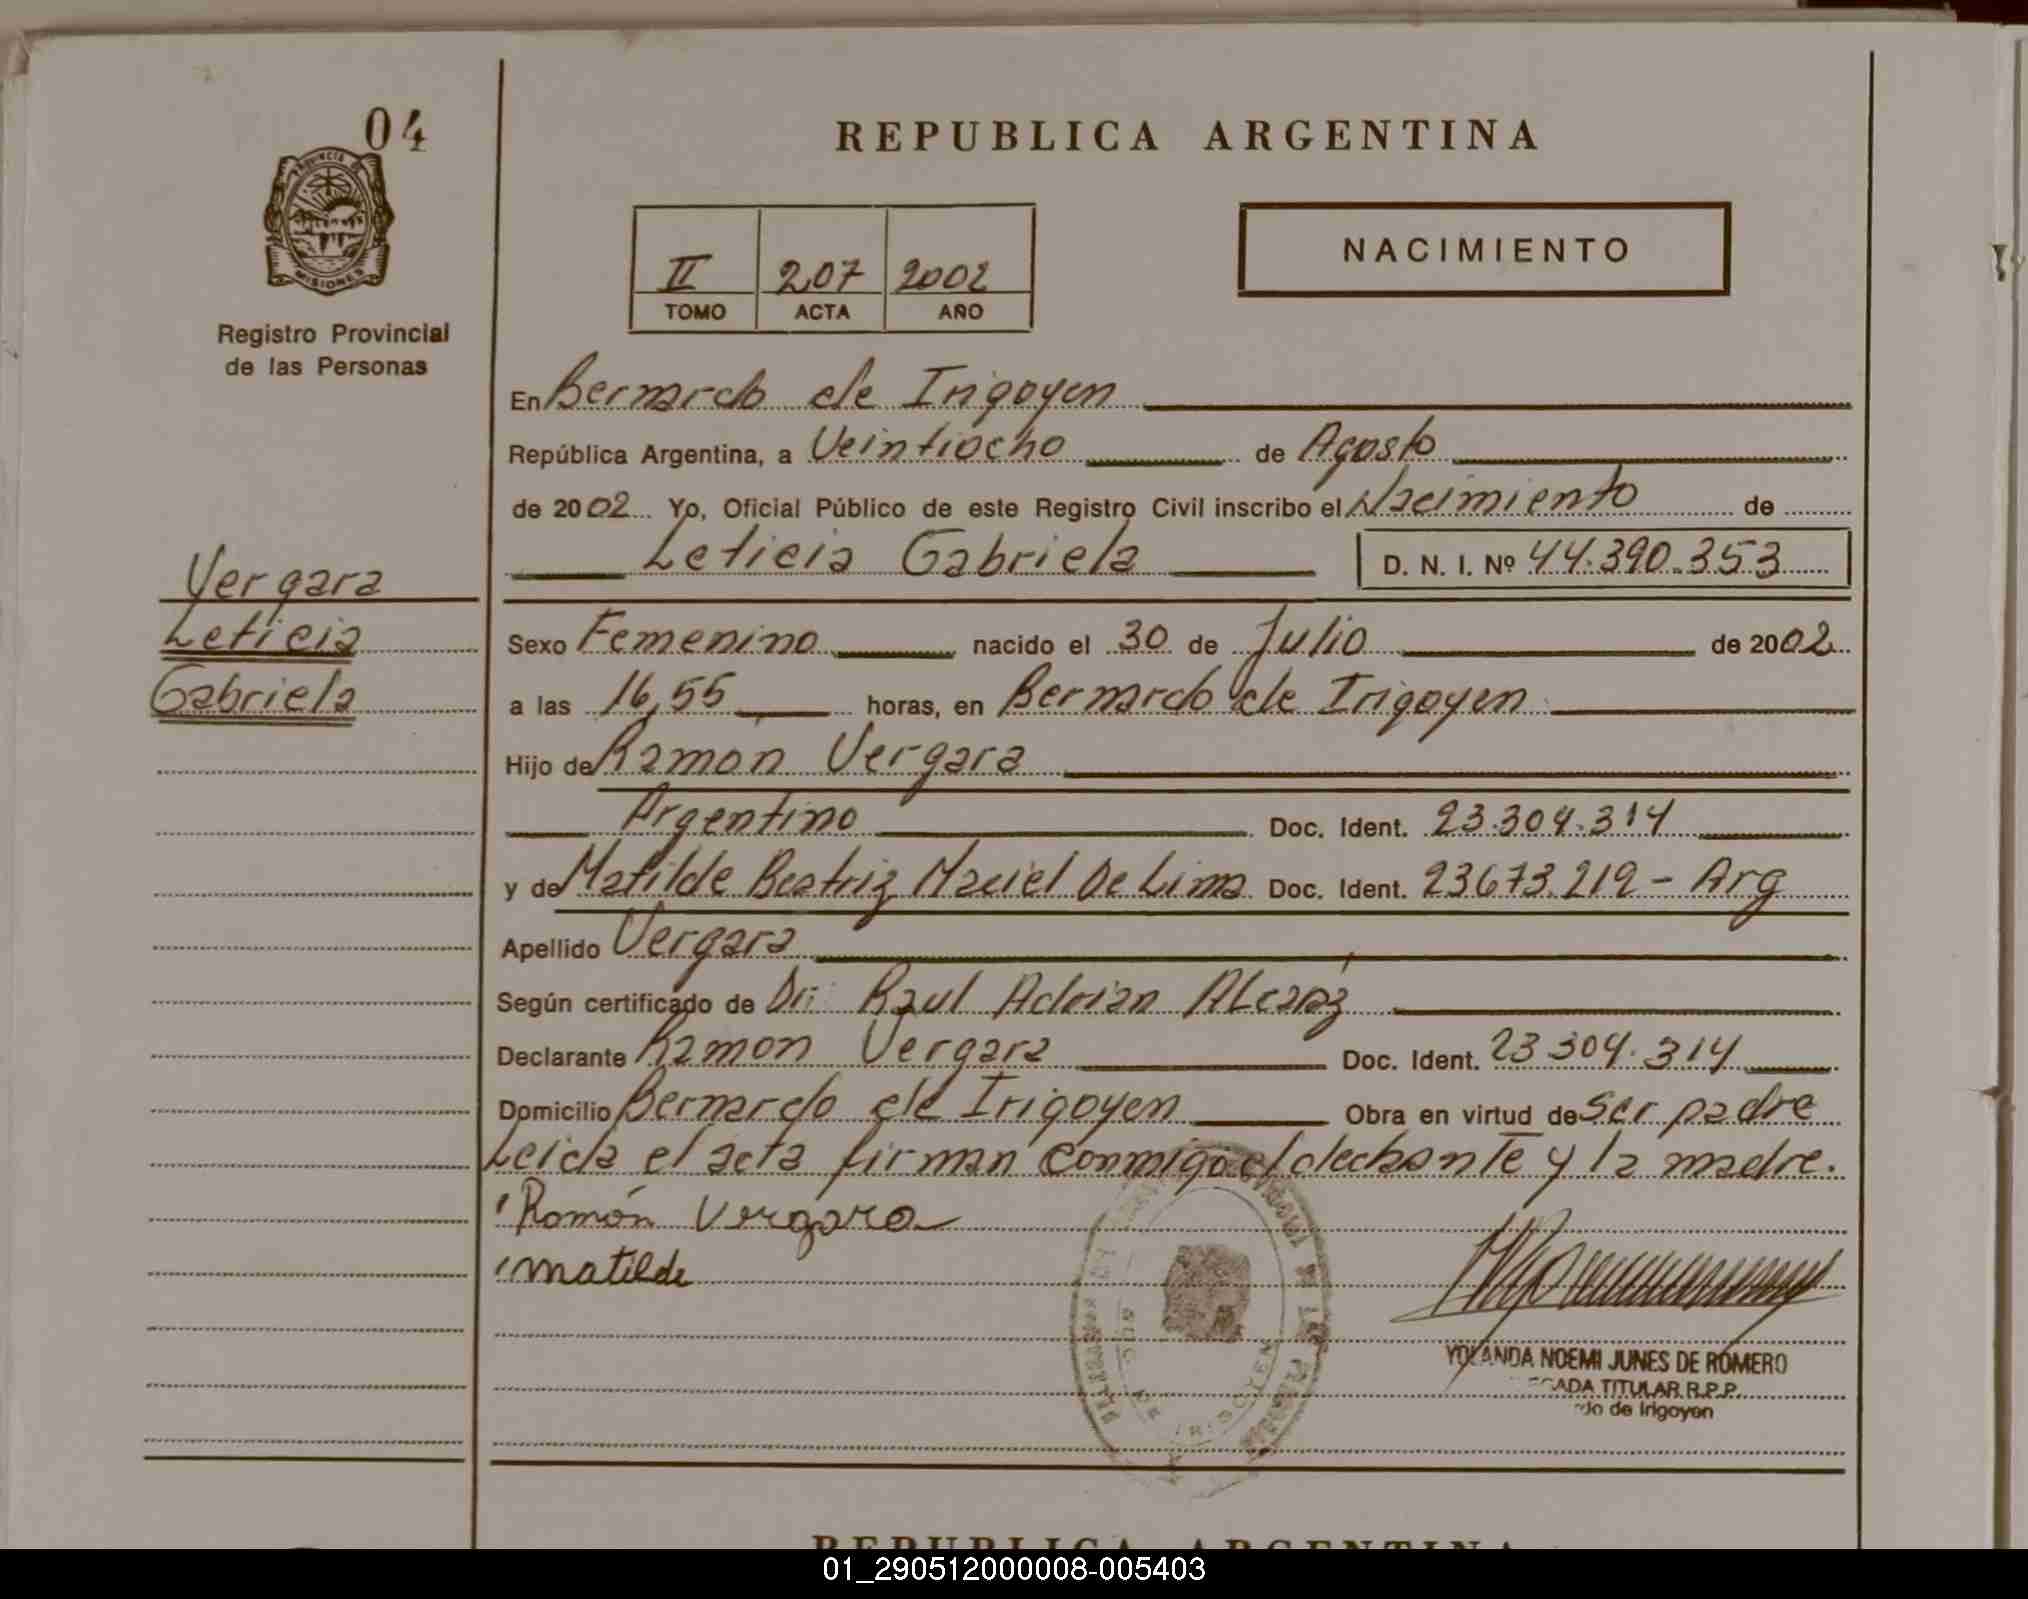 04
PROVINCIA DE
MISIONES
Registro Provincial
de las Personas
REPUBLICA ARGENTINA
II 207 2002
TOMO ACTA AÑO
NACIMIENTO
En Bernardo de Irigoyen
República Argentina, a Veintiocho de Agosto
de 2002 Yo, Oficial Público de este Registro Civil inscribo el Nacimiento de
Leticia Gabriela D. N. I. Nº 44.390.353
Vergara
Leticia
Gabriela
Sexo Femenino nacido el 30 de Julio de 2002
a las 16,55 horas, en Bernardo de Irigoyen
Hijo de Ramón Vergara
Argentino Doc. Ident. 23.304.314
y de Matilde Beatriz Maciel De Lima Doc. Ident. 23673.219 - Arg
Apellido Vergara
Según certificado de Dr: Raul Adrian Alcaráz
Declarante Ramon Vergara Doc. Ident. 23 304.314
Domicilio Bernardo de Irigoyen Obra en virtud de ser padre
Leida el acta firman conmigo el declarante y la madre.
Román Vergara
matilde
IRIGOYEN
YOLANDA NOEMI JUNES DE ROMERO
TITULAR R.P.P.
de Irigoyen
REPUBLICA ARGENTINA
01_290512000008-005403